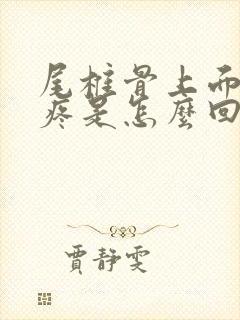 尾椎骨上面
疼是怎麼回
賈靜雯